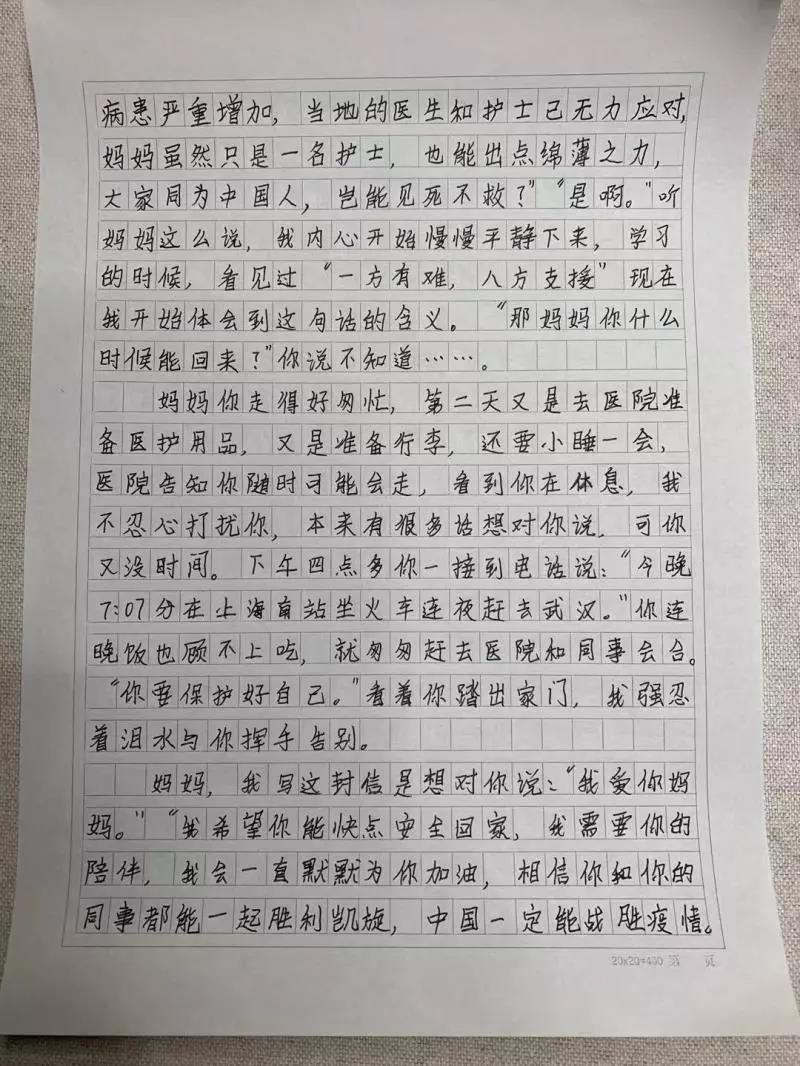 病患严重增加，当地的医生和护士已无力应对，
妈妈虽然只是一名护士，也能出点绵薄之力，
大家同为中国人，岂能见死不救？”“是啊。”听
妈妈这么说，我内心开始慢慢平静下来，学习
的时候，看见过“一方有难，八方支接”现在
我开始体会到这句话的含义。“那妈妈你什么
时候能回来？”你说不知道……。
妈妈你走得好匆忙，第二天又是去医院准
备医护用品，又是准备行李，还要小睡一会，
医院告知你随时可能会走，看到你在休息，我
不忍心打扰你，本来有很多话想对你说，可你
又没时间。下午四点多你一接到电话说：“今晚
7:07分在上海南站坐火车连夜赶去武汉。”你连
晚饭也顾不上吃，就匆匆赶去医院和同事会合。
“你要保护好自己。”看着你踏出家门，我强忍
着泪水与你挥手告别。
妈妈，我写这封信是想对你说：“我爱你妈
妈。”“我希望你能快点安全回家，我需要你的
陪伴，我会一直默默为你加油，相信你和你的
同事都能一起胜利凯旋，中国一定能战胜疫情。
20x20=400 第 页